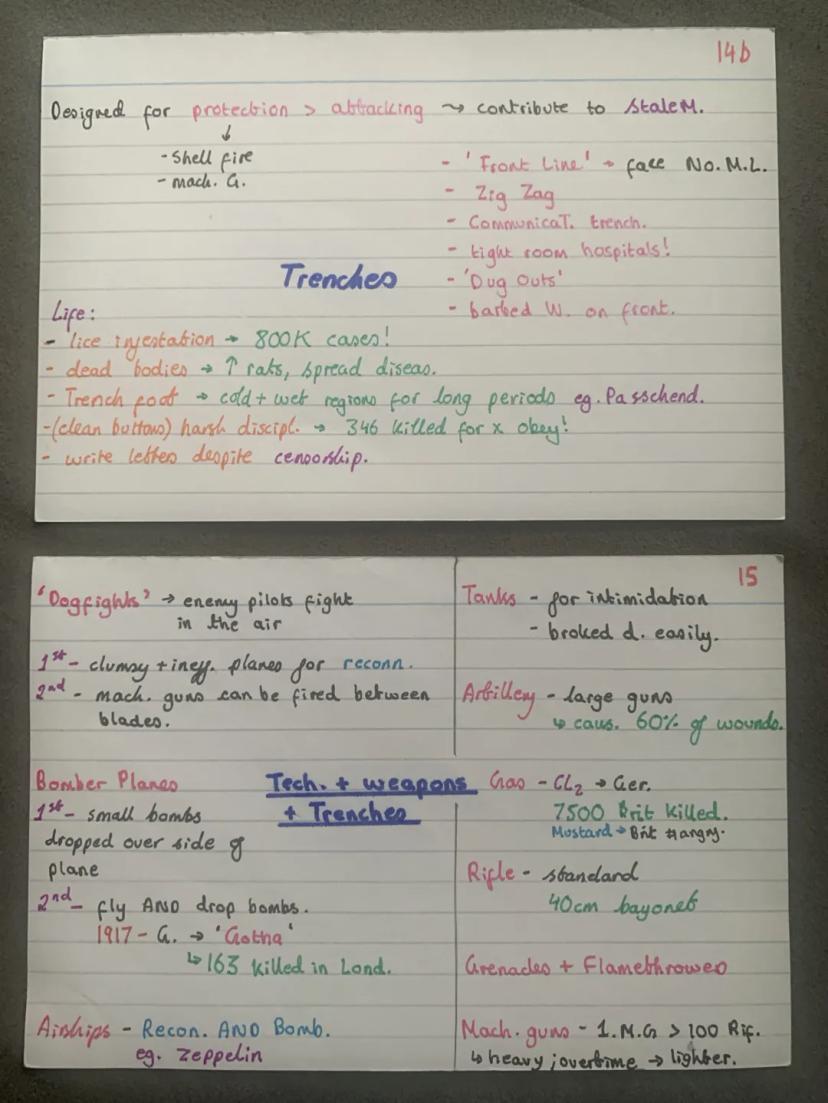 14b
Designed for protection > attacking ⤳ contribute to StaleM.
↓
- Shell fire
- mach. G.
- 'Front Line' → face No. M.L.
- Zig Zag
- CommunicaT. trench.
- tight room hospitals!
- 'Dug Outs'
- barbed W. on front.
Trenches
Life:
- lice infestation → 800K cases!
- dead bodies → ↑ rats, spread diseas.
- Trench foot → cold + wet regions for long periods eg. Passchend.
- (clean buttons) harsh discipl. → 346 killed for x obey!
- write letters despite censorship.
15
'Dogfights' → enemy pilots fight
in the air
1st - clumsy + ineff. planes for reconn.
2nd - mach. guns can be fired between
blades.
Tanks - for intimidation
- broked d. easily.
Artillery - large guns
↳ caus. 60% of wounds.
Tech. + weapons
+ Trenches
Bomber Planes
1st - small bombs
dropped over side of
plane
2nd - fly AND drop bombs.
1917 - G. → 'Gotha'
↳ 163 killed in Lond.
Airships - Recon. AND Bomb.
eg. Zeppelin
Gas - CL2 → Ger.
7500 Brit killed.
Mustard → Brit angry.
Rifle - standard
40cm bayonet
Grenades + Flamethrower
Mach. guns - 1. M.G > 100 Rif.
↳ heavy ; overtime → lighter.